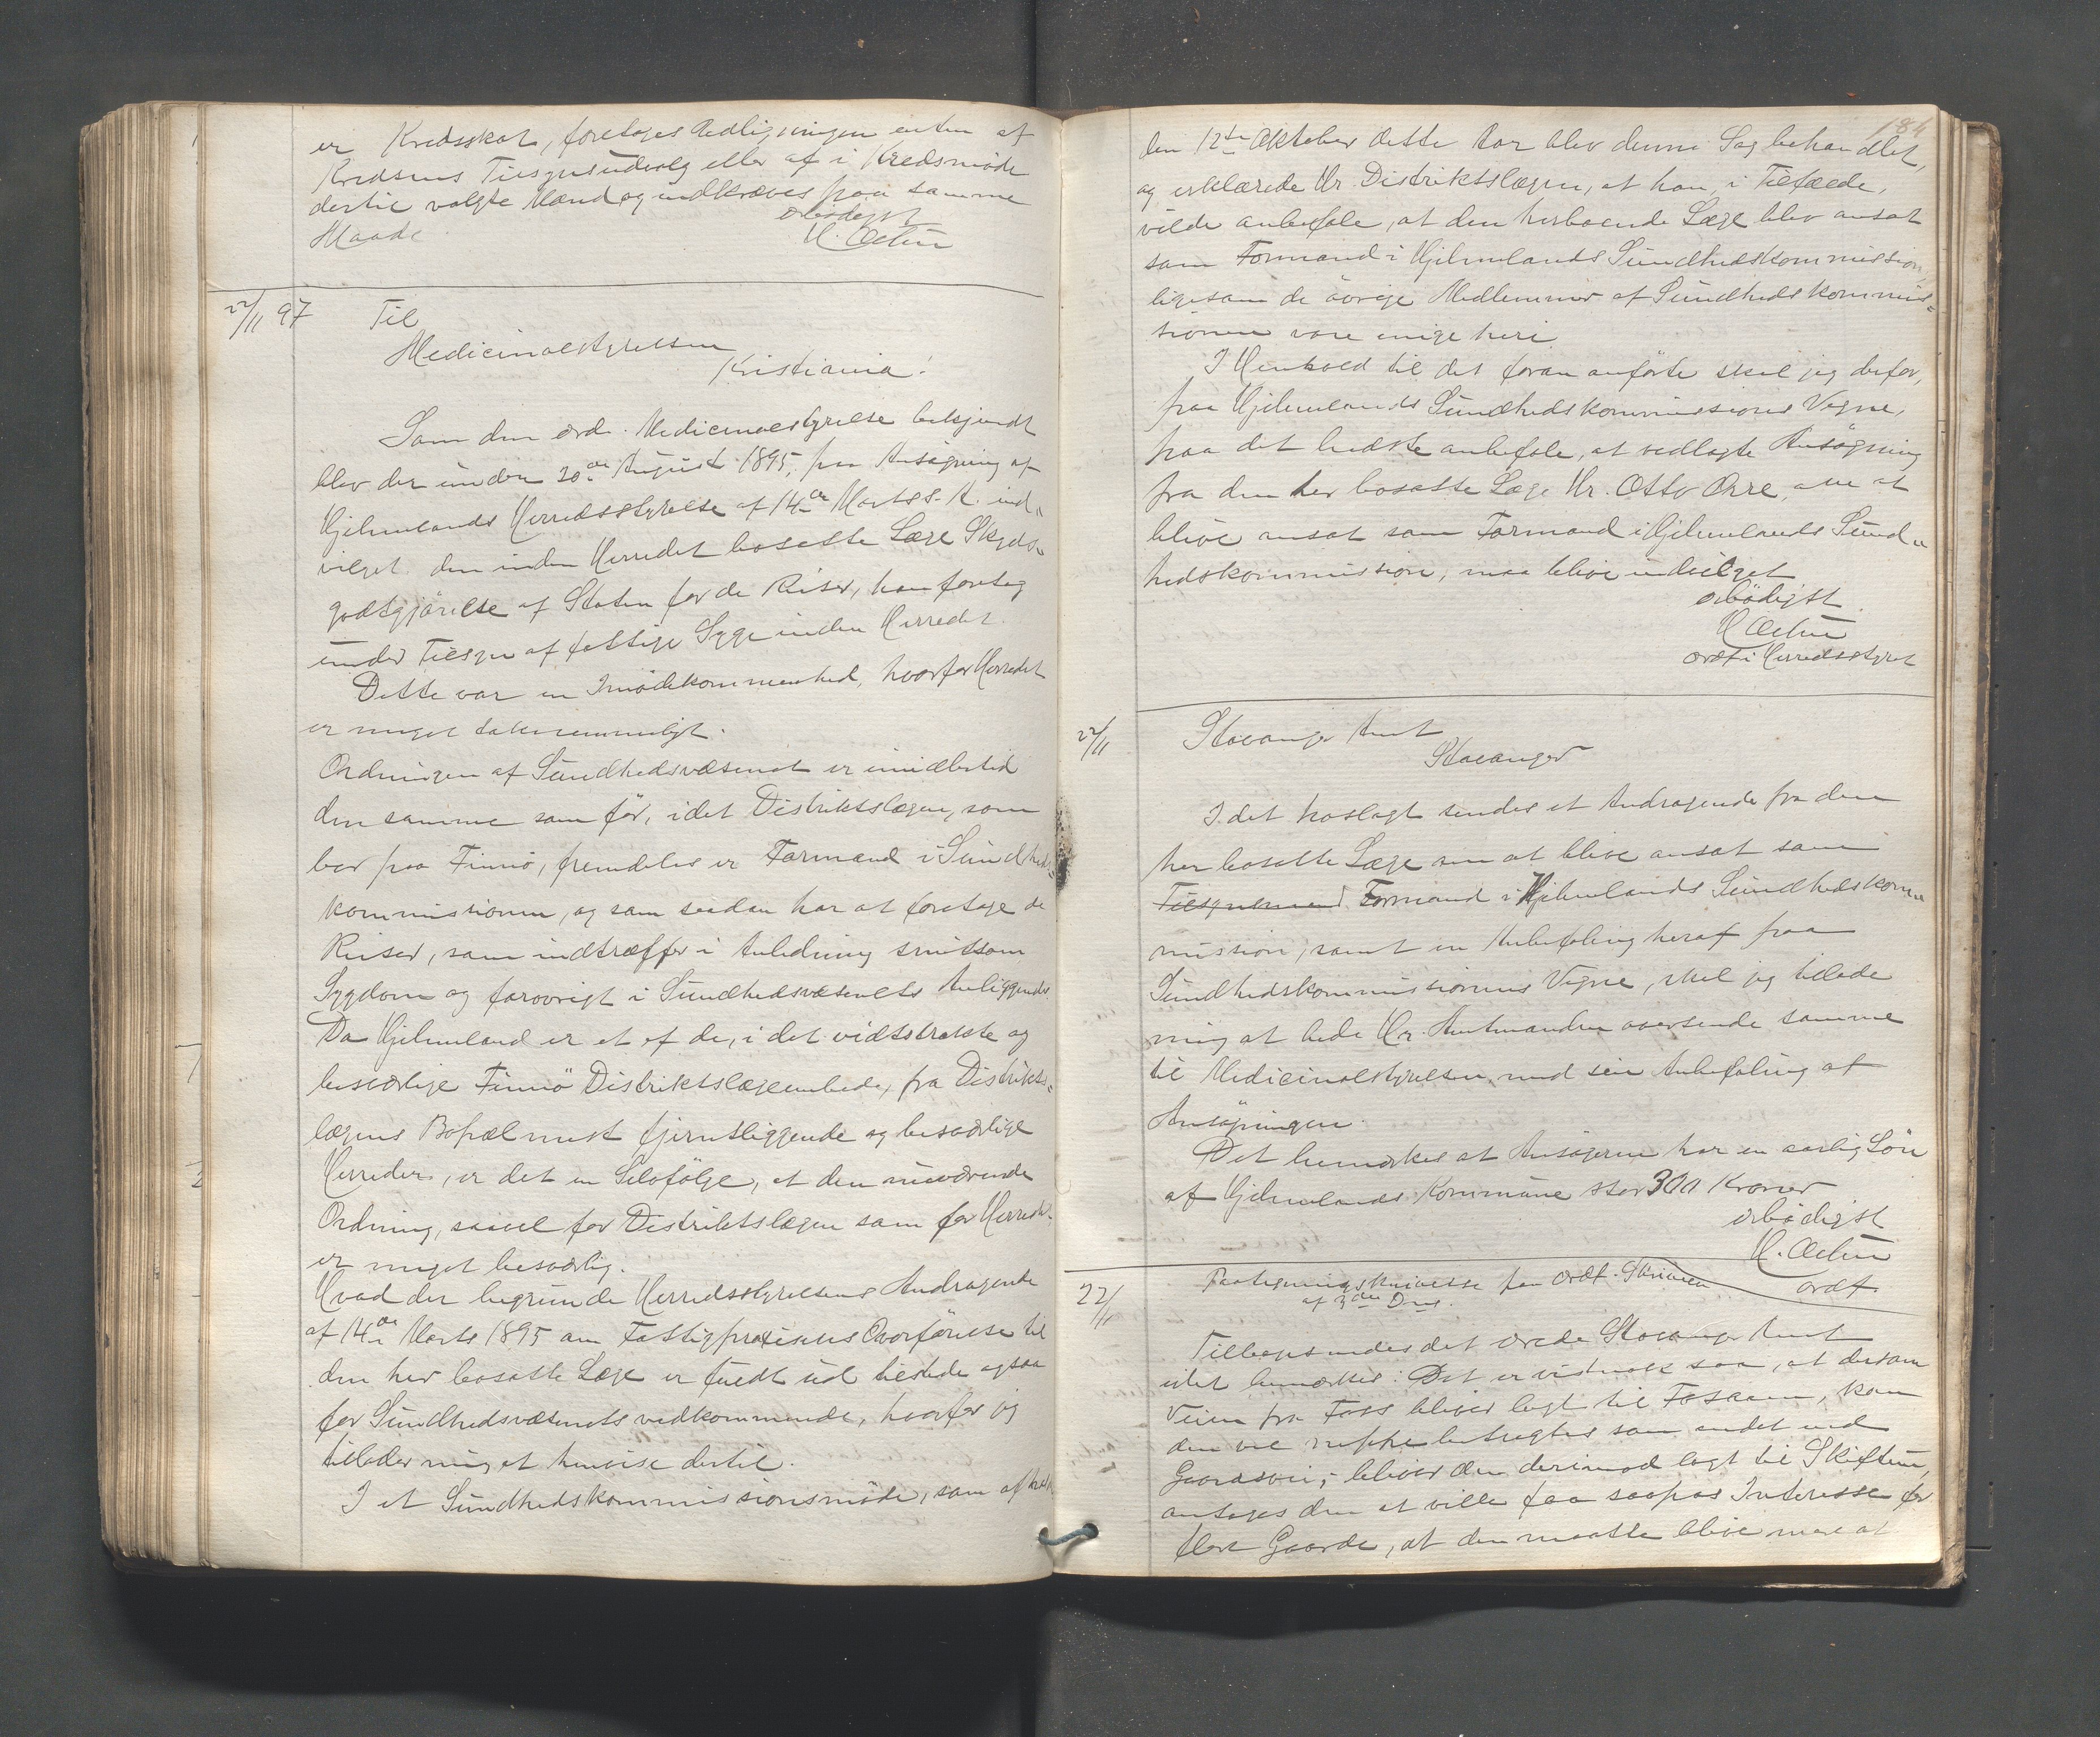 er Kredsskat, foretages Udligningen enten af
Kredsens Tilsynsudvalg eller af i Kredsmøde
dertil valgte Mænd og indkræves paa samme
Maade. ærbødigst
22/11 97 Til
Medicinalstyrelsen
Kristiania!
Som den ærde Medicinalstyrelse bekjendt
blev der under 20de August 1895, paa Ansøgning af
Hjelmelands Herredsstyrelse af 14de Marts s. A. ind-
vilget den inden Herredet bosatte Læge Skyds-
godtgjørelse af Staten for de Reiser, han foretog
under Tilsyn af fattige Syge inden Herredet.
Dette var en Imødekommenhed, hvorfor Herredet
er meget taknemmeligt.
Ordningen af Sundhedsvæsenet er imidlertid
den samme som før, idet Distriktslægen, som
bor paa Finnø, fremdeles er Formand i Sundheds-
kommissionen, og som saadan har at foretage de
Reiser, som indtræffer i Anledning smitsom
Sygdom og forøvrigt i Sundhedsvæsenets Anliggende
Da Hjelmeland er et af de, i det vidtstrakte og
besværlige Finnø Distriktslægeembede, fra Distrikts-
lægens Bopæl mest fjerntliggende og besværlige
Herreder, er det en Selvfølge, at den nuværende
Ordning, saavel for Distriktslægen som for Herredet
er meget besværlig.
Hvad der begrunde Herredsstyrelsens Andragende
af 14de Marts 1895 om Fattigpraxisens Overførelse til
den her bosatte Læge er fuldt ud tilstede ogsaa
for Sundhedsvæsenets vedkommende, hvorfor jeg
tillader mig at henvise dertil.
I et Sundhedskommissionsmøde, som afholdt
184
den 12te Oktober dette Aar blev denne Sag behandlet,
og erklærede Hr. Distriktslægen, at han, i Tilfælde,
vilde anbefale, at den herboende Læge blev ansat
som Formand i Hjelmelands Sundhedskommission
ligesom de øvrige Medlemmer af Sundhedskommis-
sionen vare enige heri
I Henhold til det foran anførte skal jeg derfor,
paa Hjelmelands Sundhedskommissions Vegne,
paa det bedste anbefale, at vedlagte Ansøgning
fra den her bosatte Læge Hr. Otto om at
blive ansat som Formand i Hjelmelands Sund-
hedskommission, maa blive indvilget
ærbødigst
ordf i Herredsstyret
22/11 Stavanger Amt
Stavanger
I det hoslagt sendes et Andragende fra den
her bosatte Læge om at blive ansat som
Tilsynsmand Formand i Hjelmelands Sundhedskom-
mission, samt en Anbefaling heraf paa
Sundhedskommissionens Vegne, skal jeg tillade
mig at bede Hr. Amtmanden oversende samme
til Medicinalstyrelsen med sin Anbefaling af
Ansøgningen.
Det bemærkes at Ansøgeren har en aarlig Løn
af Hjelmelands Kommune stor 300 Kroner
ærbødigst
ordf.
22/11 Paategningsskrivelse paa ordf. Skrivelse
af 3die Ds.
Tilbagesendes det ærede Stavanger Amt
idet bemærkes: Det er vistnok saa, at dersom
Veien fra Foss bliver lagt til Fosaaen, kan
den vel neppe betragtes som andet end
Gaardsvei; bliver den derimod lagt til Skiftun,
antages den at ville faa saapas Interesse for
flere Gaarde, at den maatte blive mere at